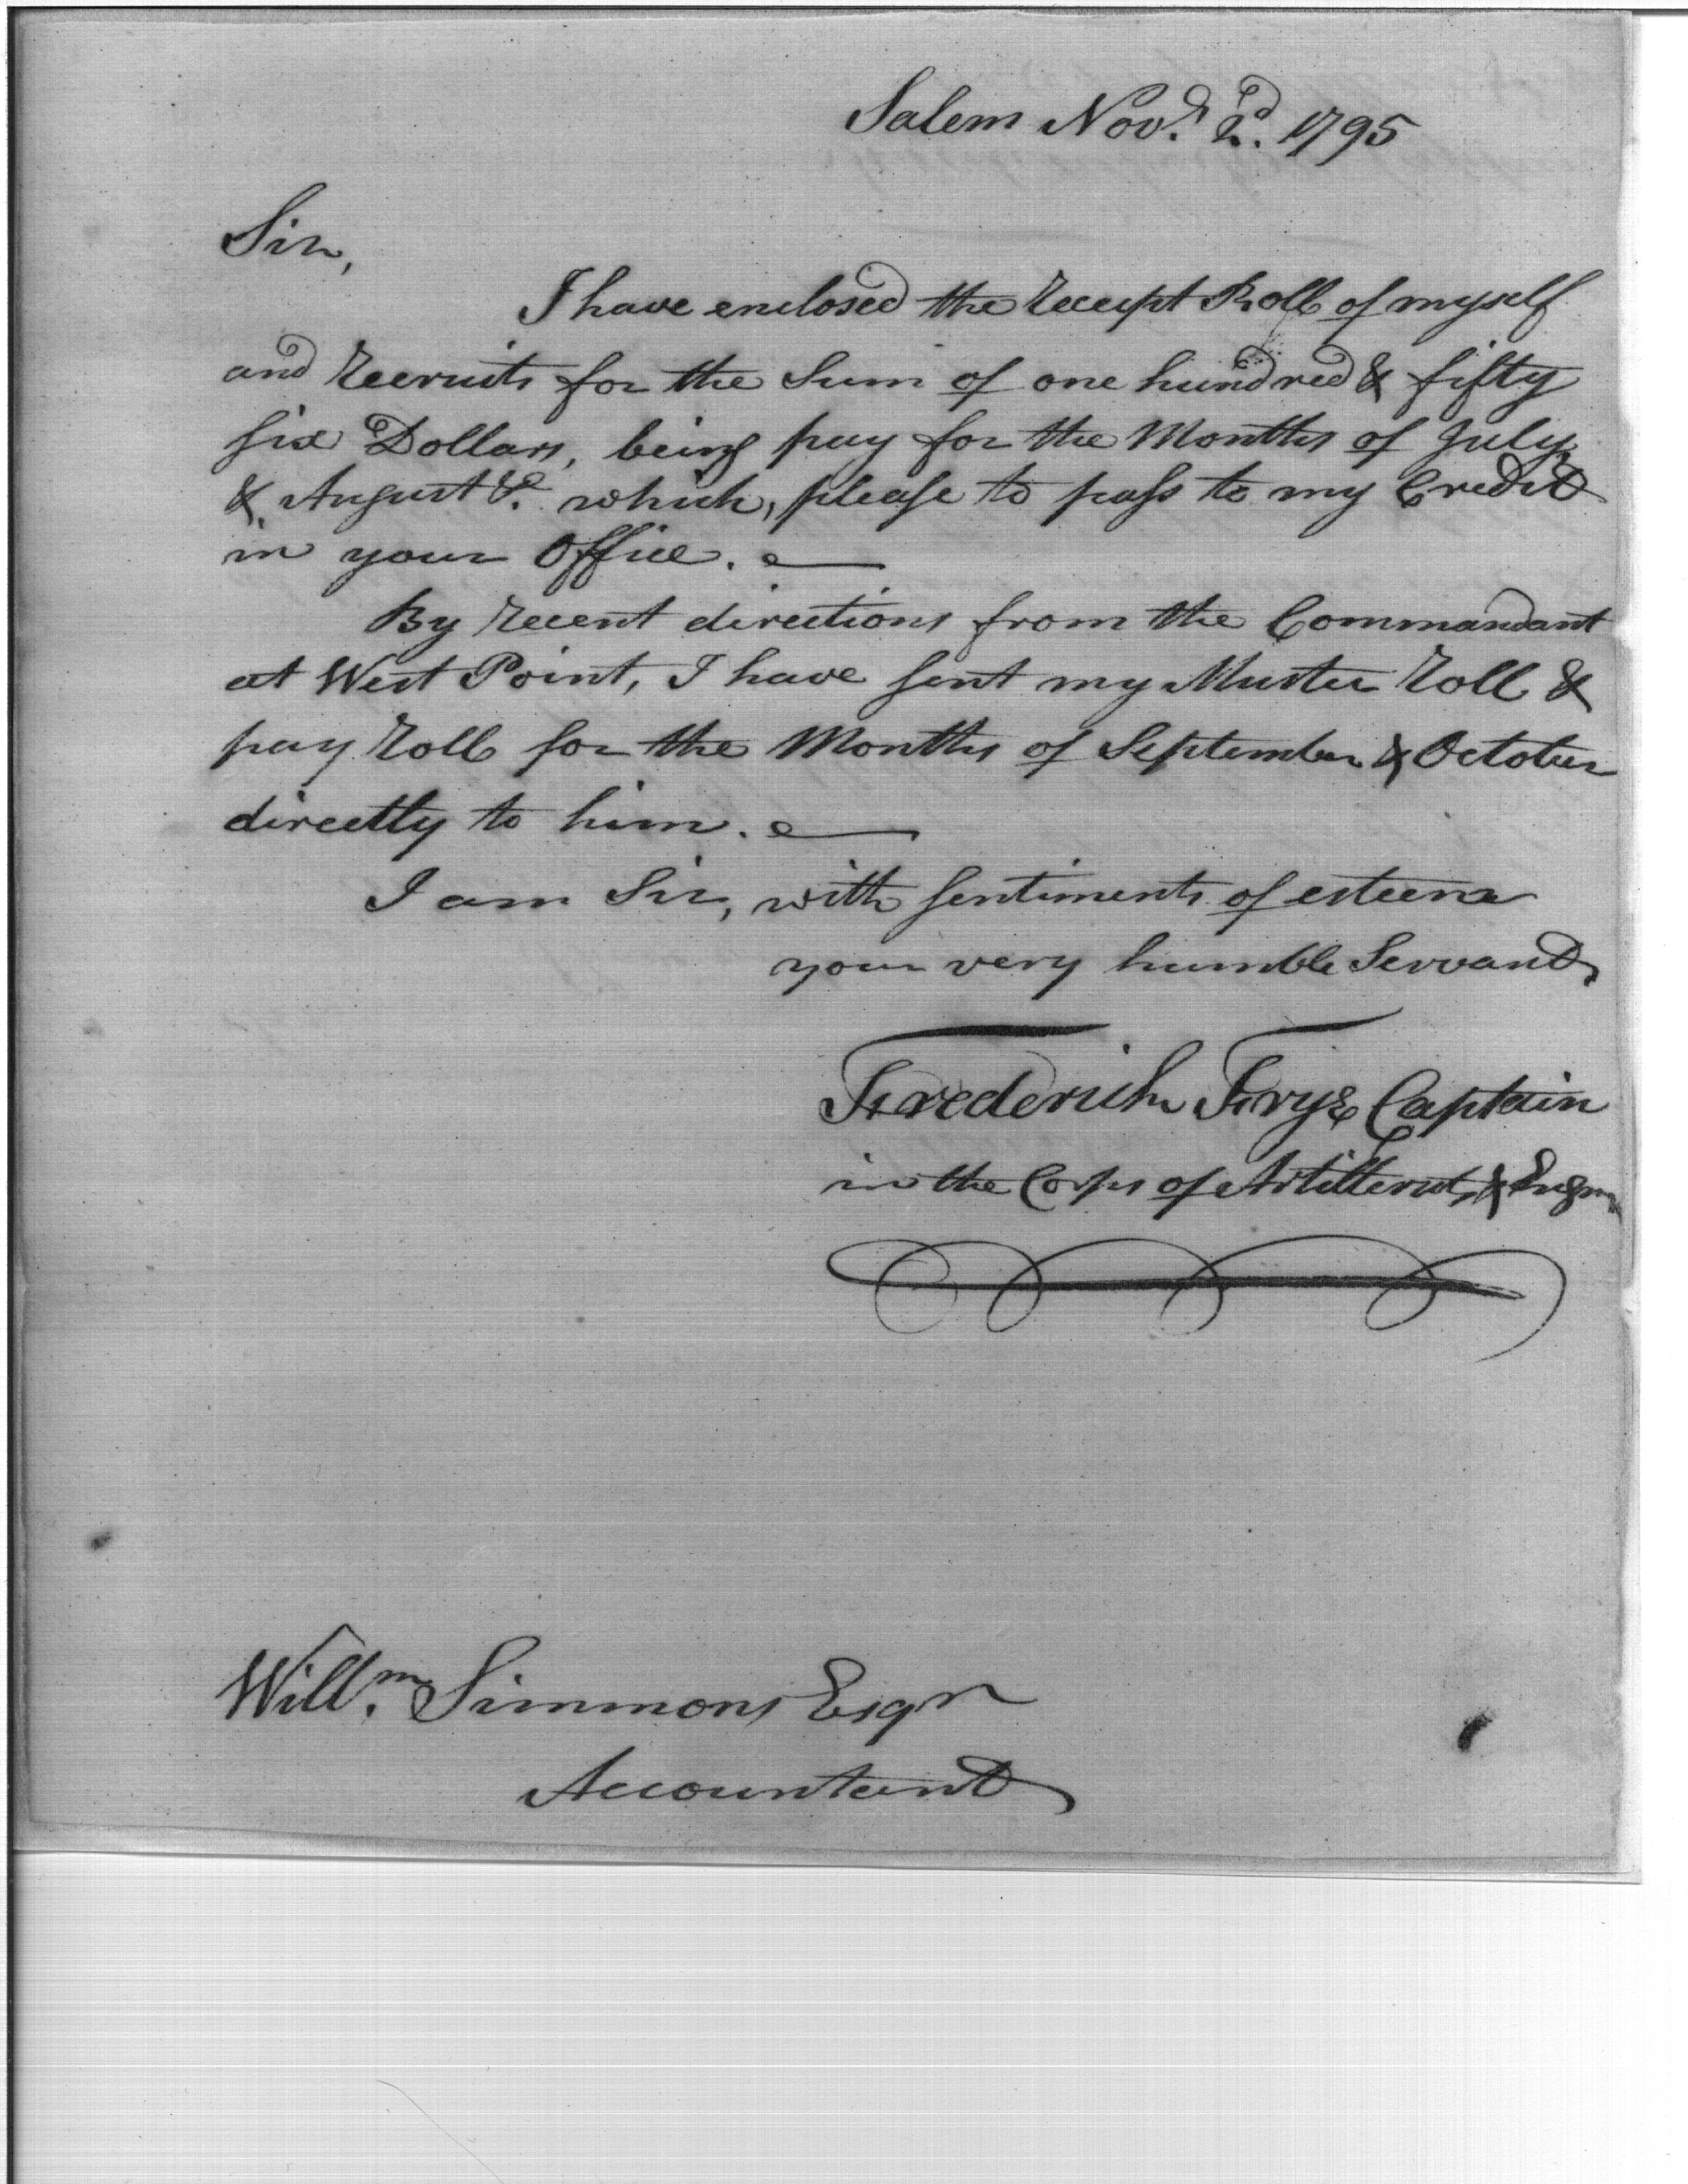 Salem Novr. 2d. 1795
Sir,
I have enclosed the receipt Roll of myself
and recruits for the Sum of one hundred & fifty
six Dollars, being pay for the Months of July
& August &c. which, please to pass to my Credit
in your Office.
By recent directions from the Commandant
at West Point, I have sent my Muster roll &
pay roll for the Months of September & October
directly to him.
I am Sir, with sentiments of esteem
your very humble Servant
Frederick Frye Captain
in the Corps of Artillerists & Engrs
Willm. Simmons Esqr
Accountant